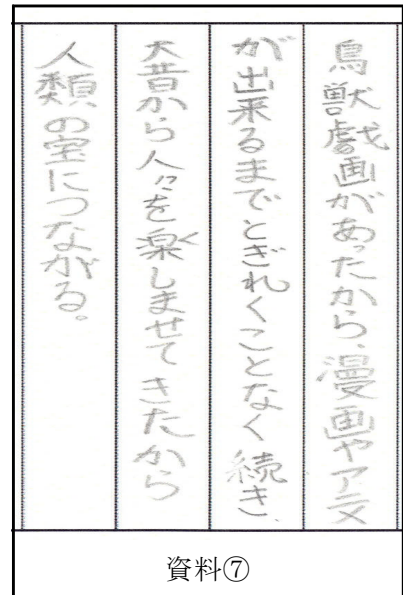 鳥獣戯画があったから、漫画やアニメ
が出来るまでとぎれくことなく続き、
大昔から人々を楽しませてきたから
人類の宝につながる。
資料⑦